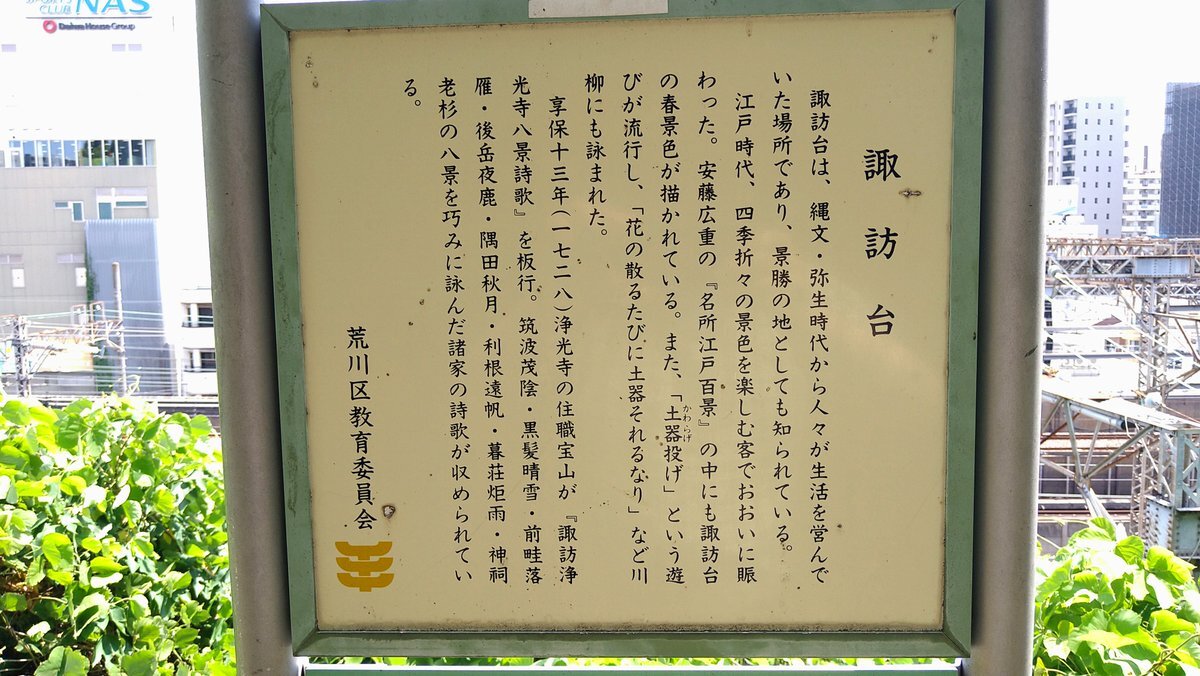 諏訪台
諏訪台は、縄文・弥生時代から人々が生活を営んで
いた場所であり、景勝の地としても知られている。
江戸時代、四季折々の景色を楽しむ客でおおいに賑
わった。安藤広重の『名所江戸百景』の中にも諏訪台
の春景色が描かれている。また、「土器投げ」という遊
かわらけ
びが流行し、「花の散るたびに土器それるなり」など川
柳にも詠まれた。
享保十三年(一七二八)浄光寺の住職宝山が『諏訪浄
光寺八景詩歌』を板行。筑波茂陰・黒髪晴雪・前畦落
雁・後岳夜鹿・隅田秋月・利根遠帆・暮荘炬雨・神祠
老杉の八景を巧みに詠んだ諸家の詩歌が収められてい
る。
荒川区教育委員会
CLUB NAS
Daiwa House Group